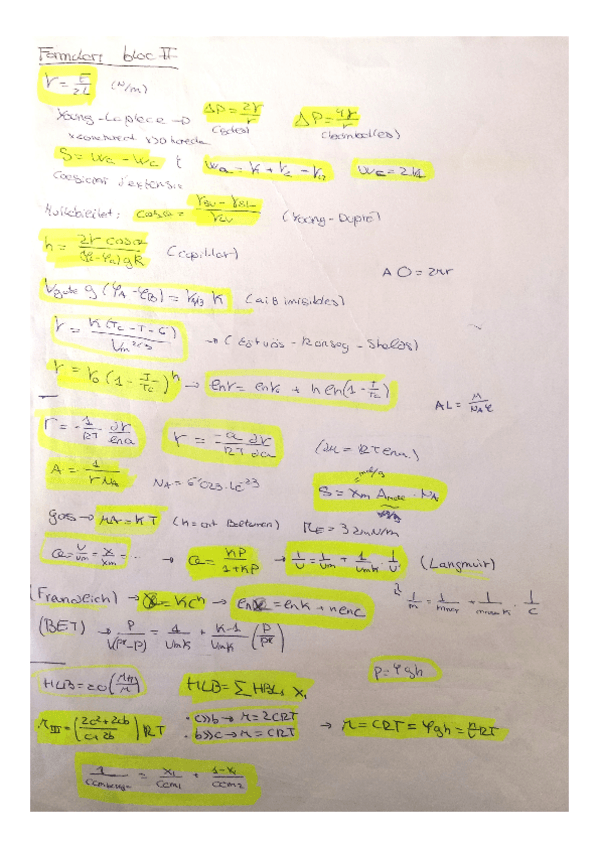 Formulari bloc II
γ = F/2L (N/m)
Young-Laplace → ΔP = 2γ/r (gotes) ΔP = 4γ/r (bombolles)
S = Wa - Wc Wa = γ + γ2 - γ12 Wc = 2γ
Coeficient d'extensió
Mullabilitat: cosα = (γSV - γSL)/γLV (Young-Dupré)
h = 2γ cosα / (φ - φ) g R (capil·lar)
AO = 2πr
Vgota g (φA - φB) = γA/B K (A i B immiscibles)
γ = K(Tc - T - 6) / Vm^2/3 → (Eötvös - Ramsay - Shields)
γ = γ0 (1 - T/Tc)^n → lnγ = lnγ0 + n ln(1 - T/Tc)
AL = M/NAφ
Γ = -1/RT ∂γ/∂lna Γ = -a/RT ∂γ/∂a (∂μ = RT ln)
A = 1/ΓNA NA = 6'023·10^23 S = Xm Amolec · NA
gas → πA = KT (K = cnt Boltzman) πE = 32mN/m
θ = V/Vm = X/Xm = ... → θ = KP/1+KP → 1/V = 1/Vm + 1/VmK · 1/P (Langmuir)
(Freundlich) → X = KC^n → lnX = lnK + n lnC
1/m = 1/mmax + 1/mmax K · 1/C
(BET) → P/V(P°-P) = 1/VmK + K-1/VmK (P/P°)
P = φgh
HLB = 20 (MH/M) HLB = Σ HBLi Xi
πIII = (2c²+2cb / c+2b) RT · c>>b → π = 2CRT
· b>>c → π = CRT → π = CRT = φgh = n/V RT
1/CCMbarreja = X1/CCM1 + 1-X1/CCM2